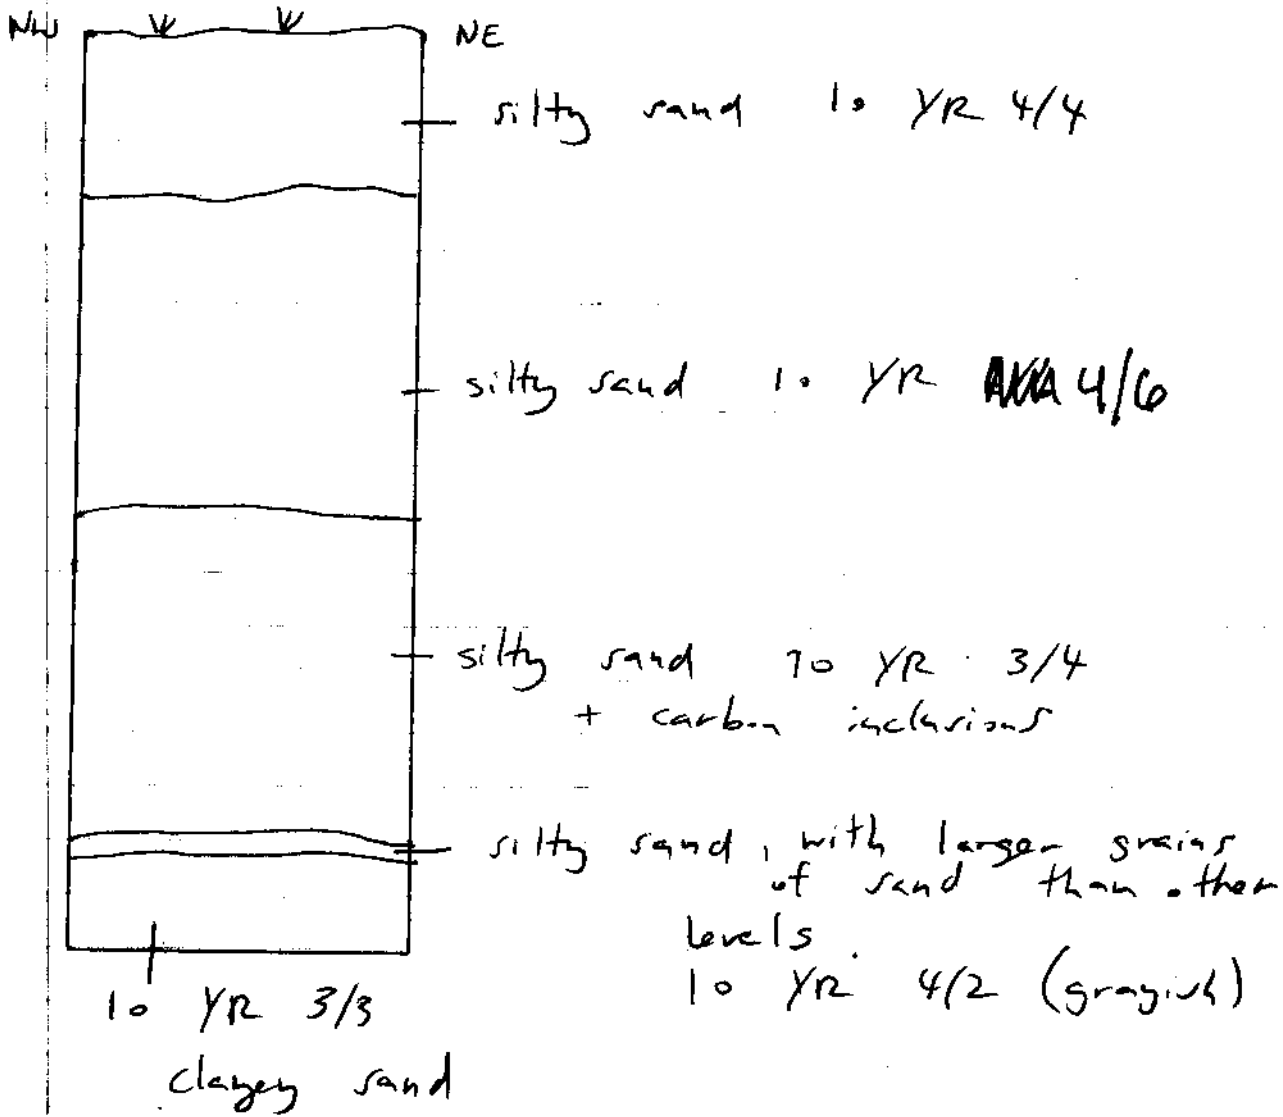 NW NE
silty sand 10 YR 4/4
silty sand 10 YR 4/6
silty sand 10 YR 3/4
+ carbon inclusions
silty sand, with larger grains
of sand than other
levels
10 YR 4/2 (grayish)
10 YR 3/3
clayey sand